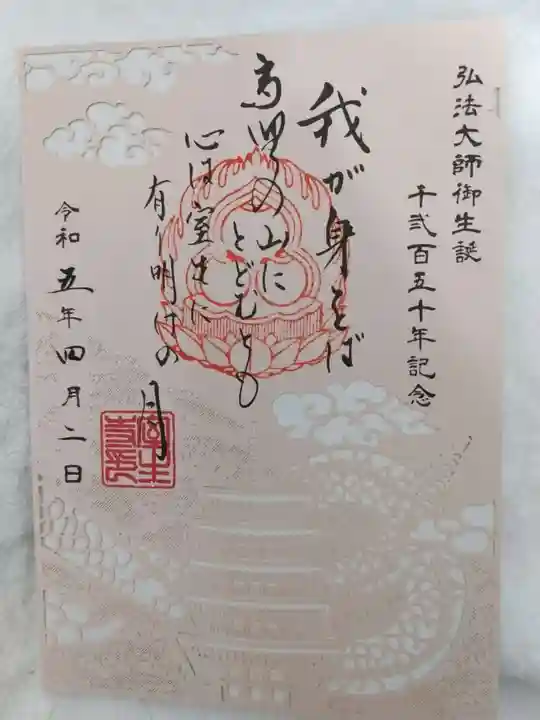 弘法大師御生誕
千弐百五十年記念
我が身をば
高野の山に
とどむとも
心は室生に
有り明けの月
令和五年四月二日